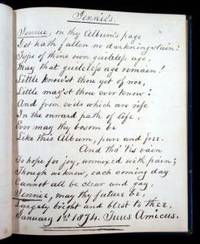 Jennie's.
Jennie, on thy Album's page
Yet hath fallen no darkning stain!
Type of thine own guileless age,
May that guileless age remain!
Little know'st thou yet of woe,
Little may'st thou ever know!
And from evils which are rife
In the onward path of life,
Ever may thy bosom be
Like this Album, pure and free.
And tho' 'tis vain
To hope for joy, unmixed with pain;
Though we know, each coming day
Cannot all be clear and gay,
Jennie, may thy future be
Largely bright and blest to thee.
January 1st 1874. Tuus Amicus.